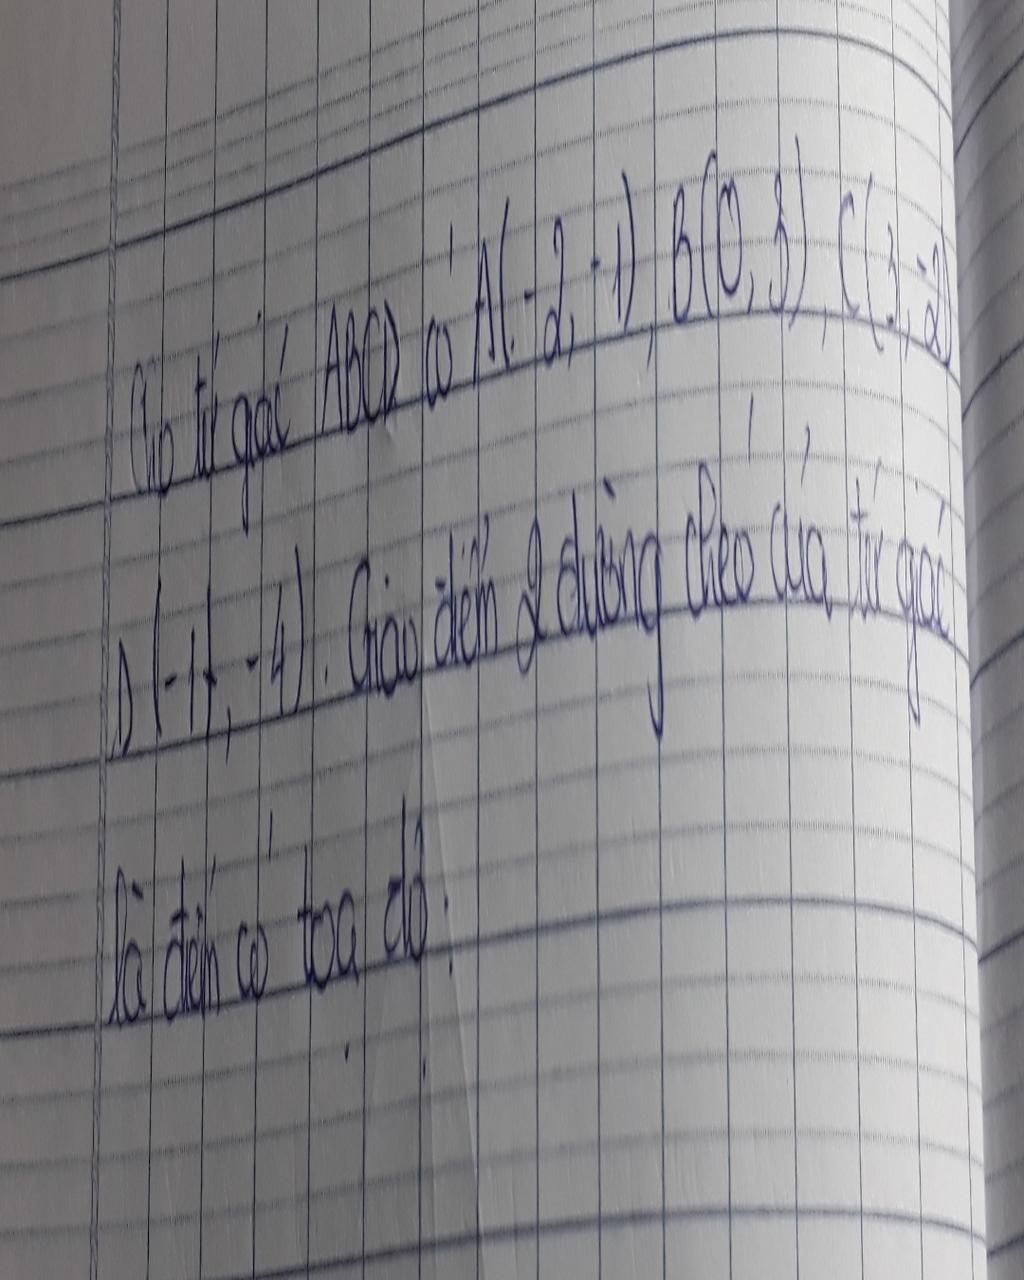 Cho tứ giác ABCD có A(-2, -1), B(0, 3), C(3, -2)
D(-1, -4). Giao điểm 2 đường chéo của tứ giác
là điểm có toạ độ: